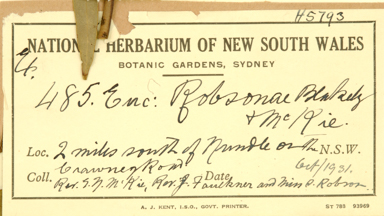 H5793
NATIONAL HERBARIUM OF NEW SOUTH WALES
BOTANIC GARDENS, SYDNEY
485. Euc: Robsonae Blakely
& McKie.
Loc. 2 miles south of Nundle on the N.S.W.
Crawney Road
Oct/1931.
Coll. Rev. E.N. McKie, Rev. J. Faulkner and Miss P. Robson
Date
A. J. KENT, I.S.O., GOVT. PRINTER.
ST 785 93969